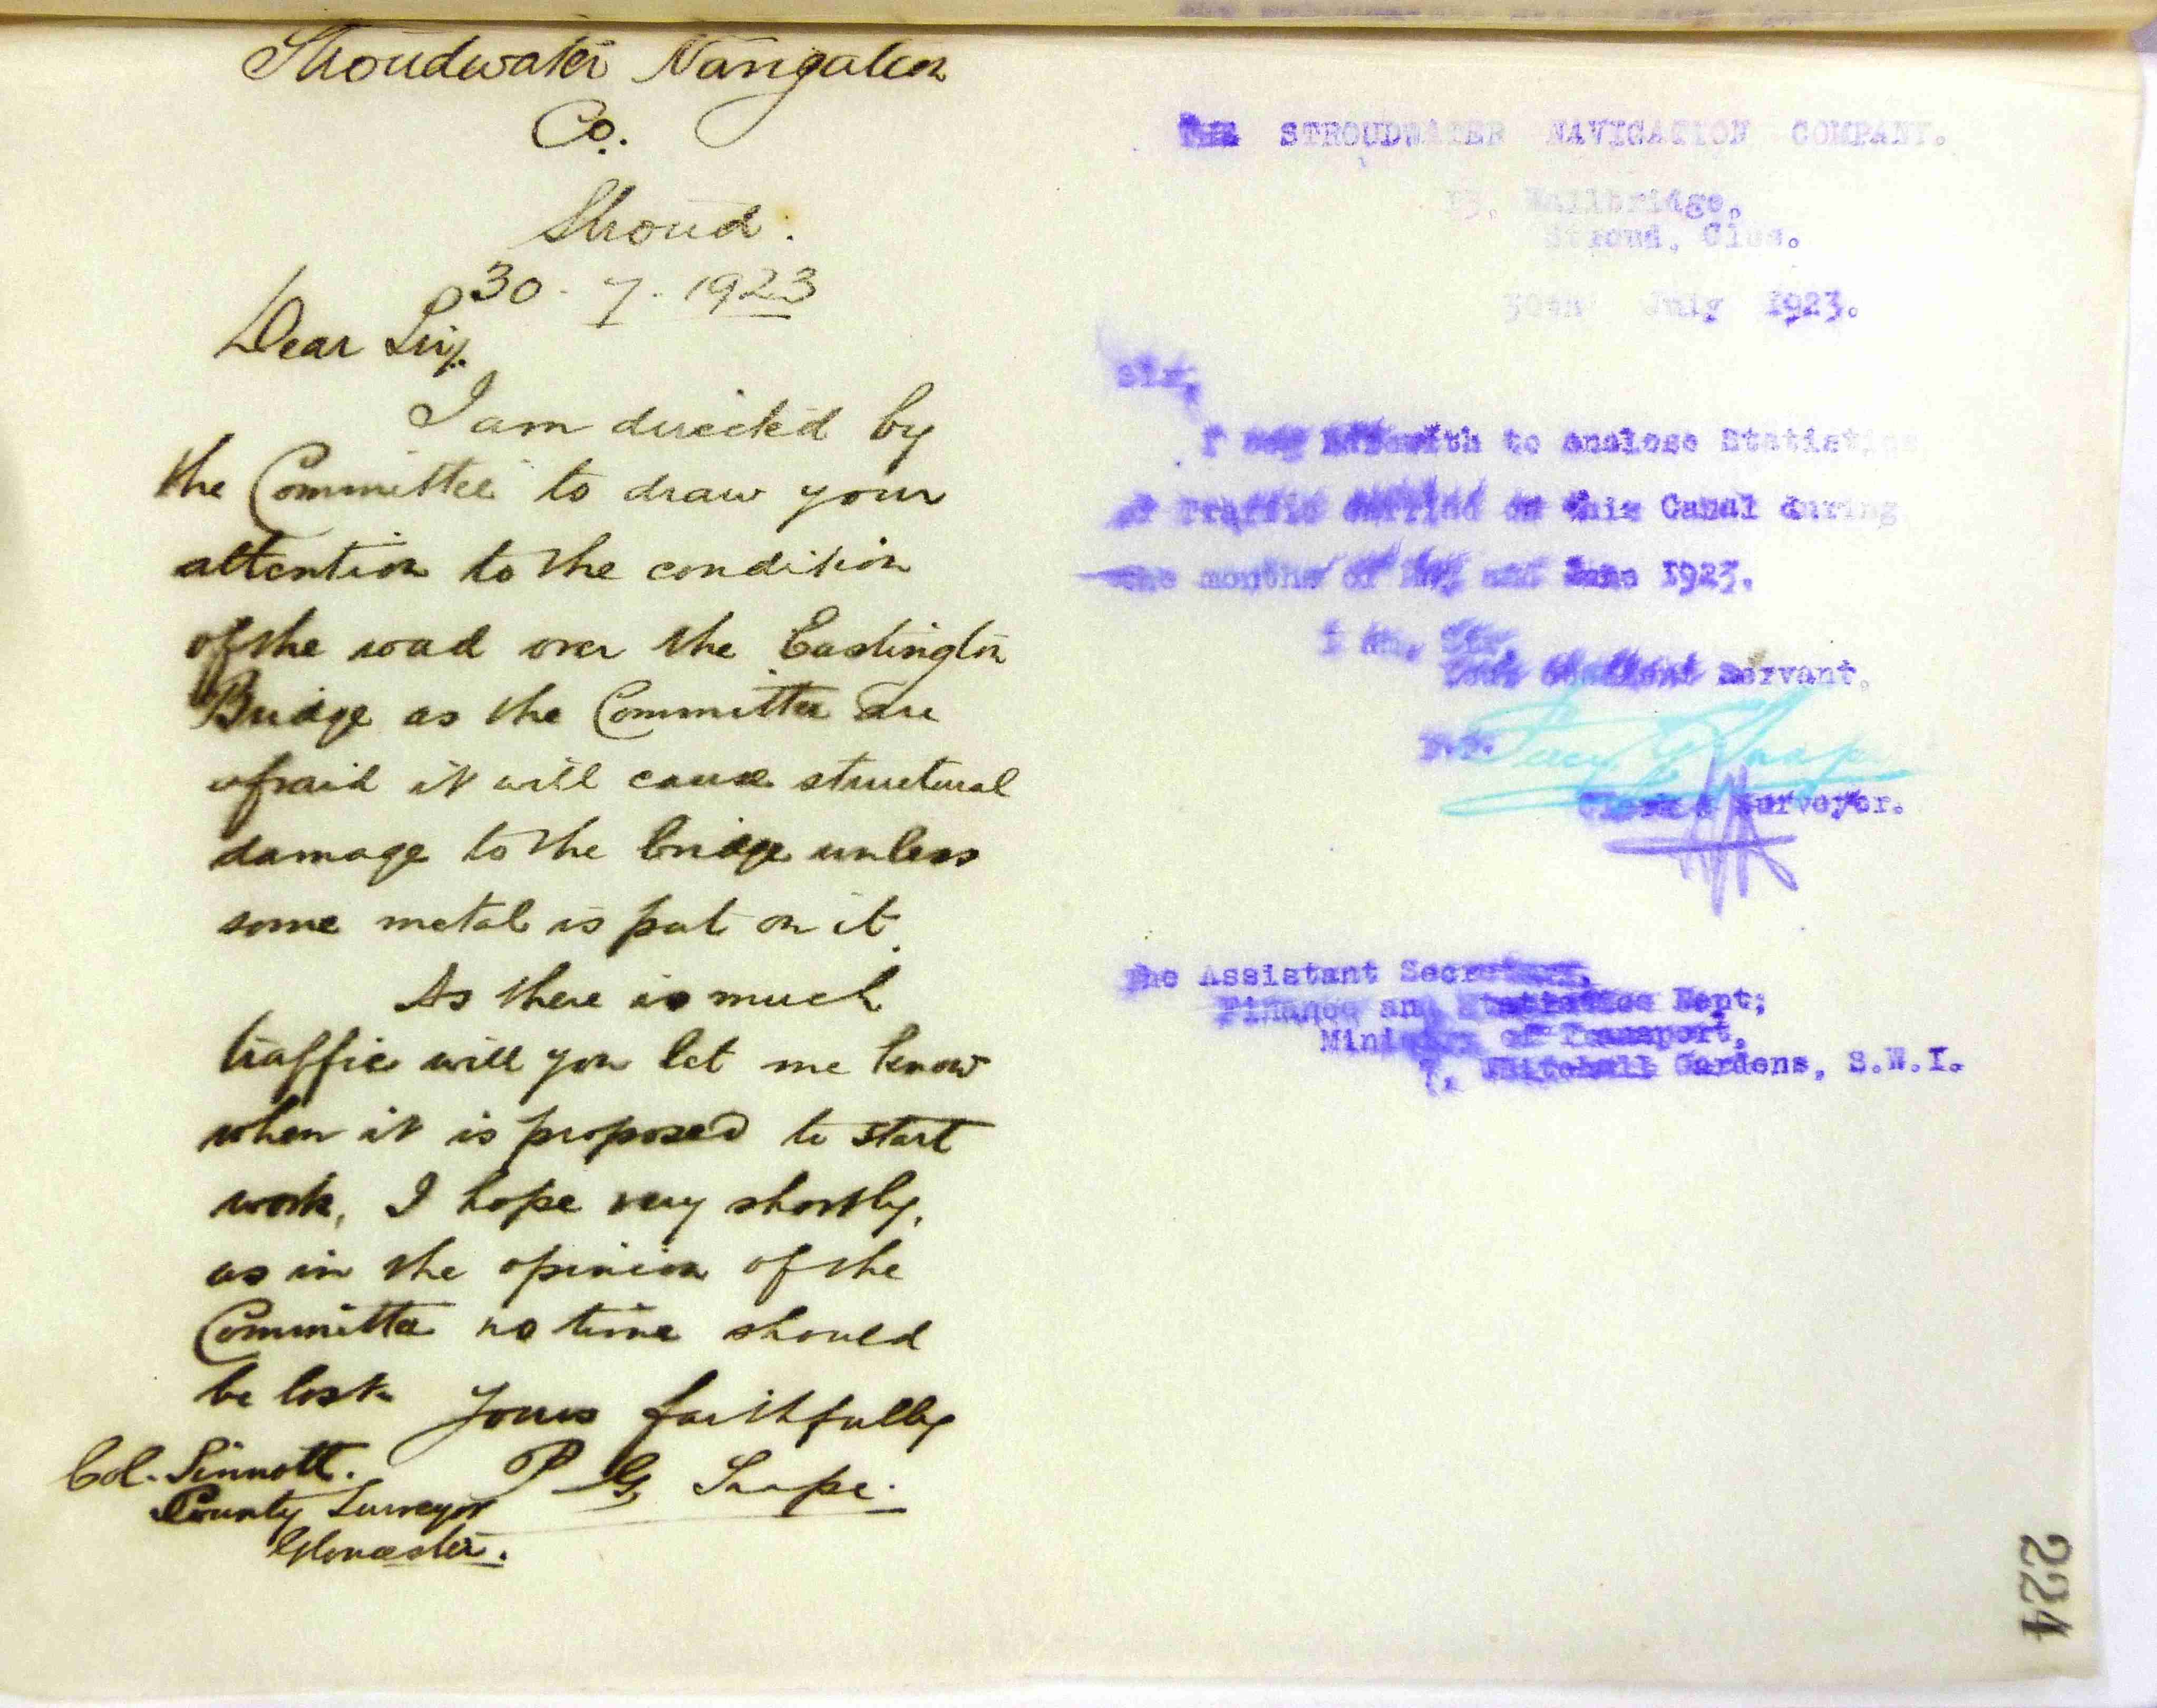 Stroudwater Navigation
Co.
Stroud.
30 - 7 - 1923
Dear Sir,
I am directed by
the Committee to draw your
attention to the condition
of the road over the Eastington
Bridge as the Committee are
afraid it will cause structural
damage to the bridge unless
some metal is put on it.
As there is much
traffic will you let me know
when it is proposed to start
work, I hope very shortly,
as in the opinion of the
Committee no time should
be lost.
Yours faithfully
P G Snape.
Col. Sinnott.
County Surveyor
Gloucester.
THE STROUDWATER NAVIGATION COMPANY.
13, Wallbridge,
Stroud, Glos.
30th July 1923.
Sir,
I beg herewith to enclose Statistics
of Traffic carried on this Canal during
the months of May and June 1923.
I am, Sir,
Your obedient Servant,
P.P. Percy G Snape
Clerk & Surveyor.
The Assistant Secretary,
Finance and Statistics Dept;
Ministry of Transport,
7, Whitehall Gardens, S.W.I.
224